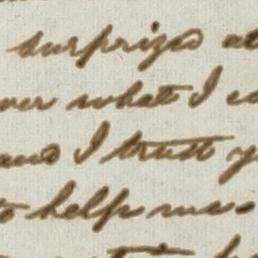 surprized at
ver what I
and I trust
to help me.